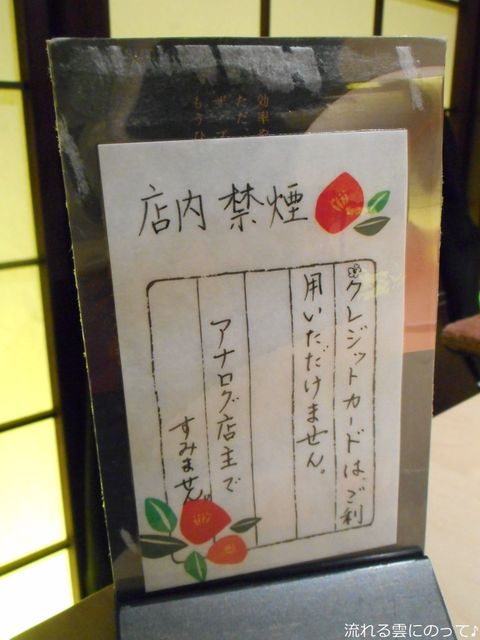 店内禁煙
※クレジットカードは、ご利
用いただけません。
アナログ店主で
すみません
効率や
ただ、
もうひ
流れる雲にのって♪